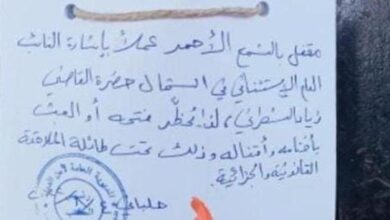 مقفل بالشمع الأحمر عملاً بإشارة النائب
العام الإستئنافي في الشمال حضرة القاضي
زياد الشعراني، لذا يُحظّر فتحه أو العبث
بأختامه وأقفاله وذلك تحت طائلة الملاحقة
القانونية والجزائية.
حلباء في